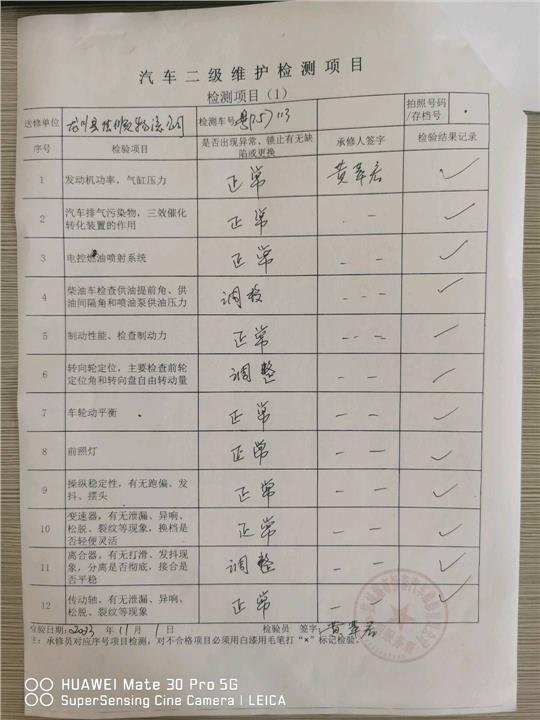 汽车二级维护检测项目
检测项目（1）
送修单位
检测车号
113
拍照号码/存档号
序号 检验项目 是否出现异常、锁止有无缺陷或更换 承修人签字 检验结果记录
1 发动机功率，气缸压力 正常 ✓
2 汽车排气污染物，三效催化转化装置的作用 正常 – – ✓
3 电控燃油喷射系统 正常 – – – ✓
4 柴油车检查供油提前角、供油间隔角和喷油泵供油压力 – – – ✓
5 制动性能、检查制动力 正常 – – – ✓
6 转向轮定位，主要检查前轮定位角和转向盘自由转动量 调整 – – ✓
7 车轮动平衡 正常 – – ✓
8 前照灯 正常 – – ✓
9 操纵稳定性，有无跑偏、发抖、摆头 正常 – – ✓
10 变速器，有无泄漏、异响、松脱、裂纹等现象，换档是否轻便灵活 正常 – – ✓
11 离合器，有无打滑、发抖现象，分离是否彻底，接合是否平稳 调整 – – ✓
12 传动轴，有无泄漏、异响、松脱、裂纹等现象 正常 ✓
检验日期：2023 年 11 月 1 日 检验员 签字：
注：承修员对应序号项目检测，对不合格项目必须用白漆用毛笔打“×”标记检验。
HUAWEI Mate 30 Pro 5G
SuperSensing Cine Camera | LEICA